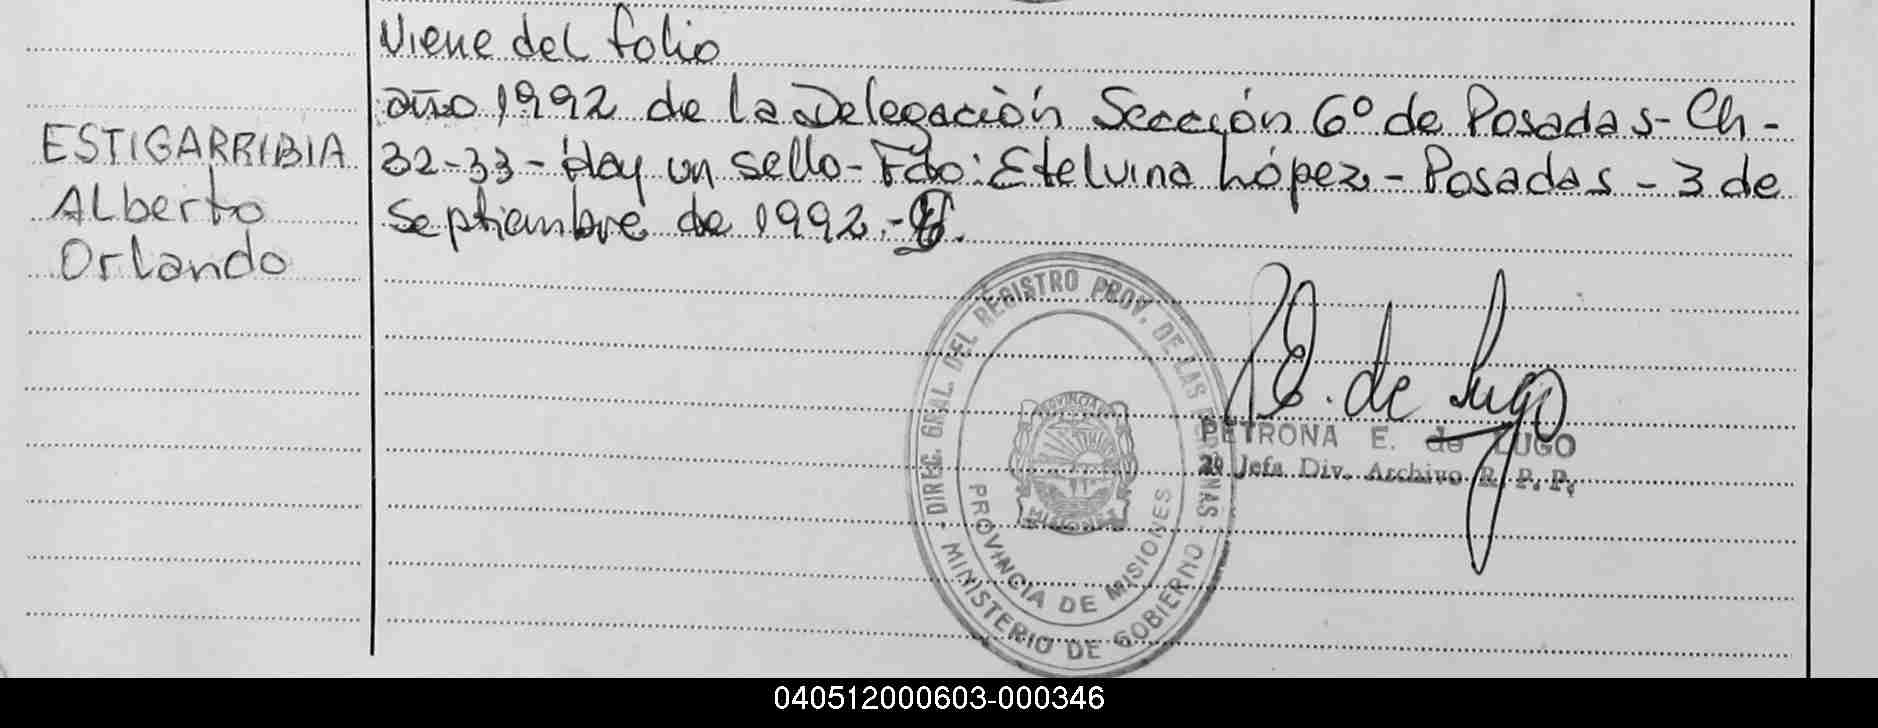 Viene del folio
año 1992 de la Delegación Sección 6º de Posadas - Ch -
32-33 - Hay un sello - Fdo: Etelvina López - Posadas - 3 de
septiembre de 1992.-
ESTIGARRIBIA
Alberto
Orlando
DIREC. GRAL. DEL REGISTRO PROV. DE LAS PERSONAS
MINISTERIO DE GOBIERNO
PROVINCIA DE MISIONES
PROVINCIA DE
MISIONES
P. E. de Lugo
PETRONA E. de LUGO
Jefa Div. Archivo R. P. P.
040512000603-000346